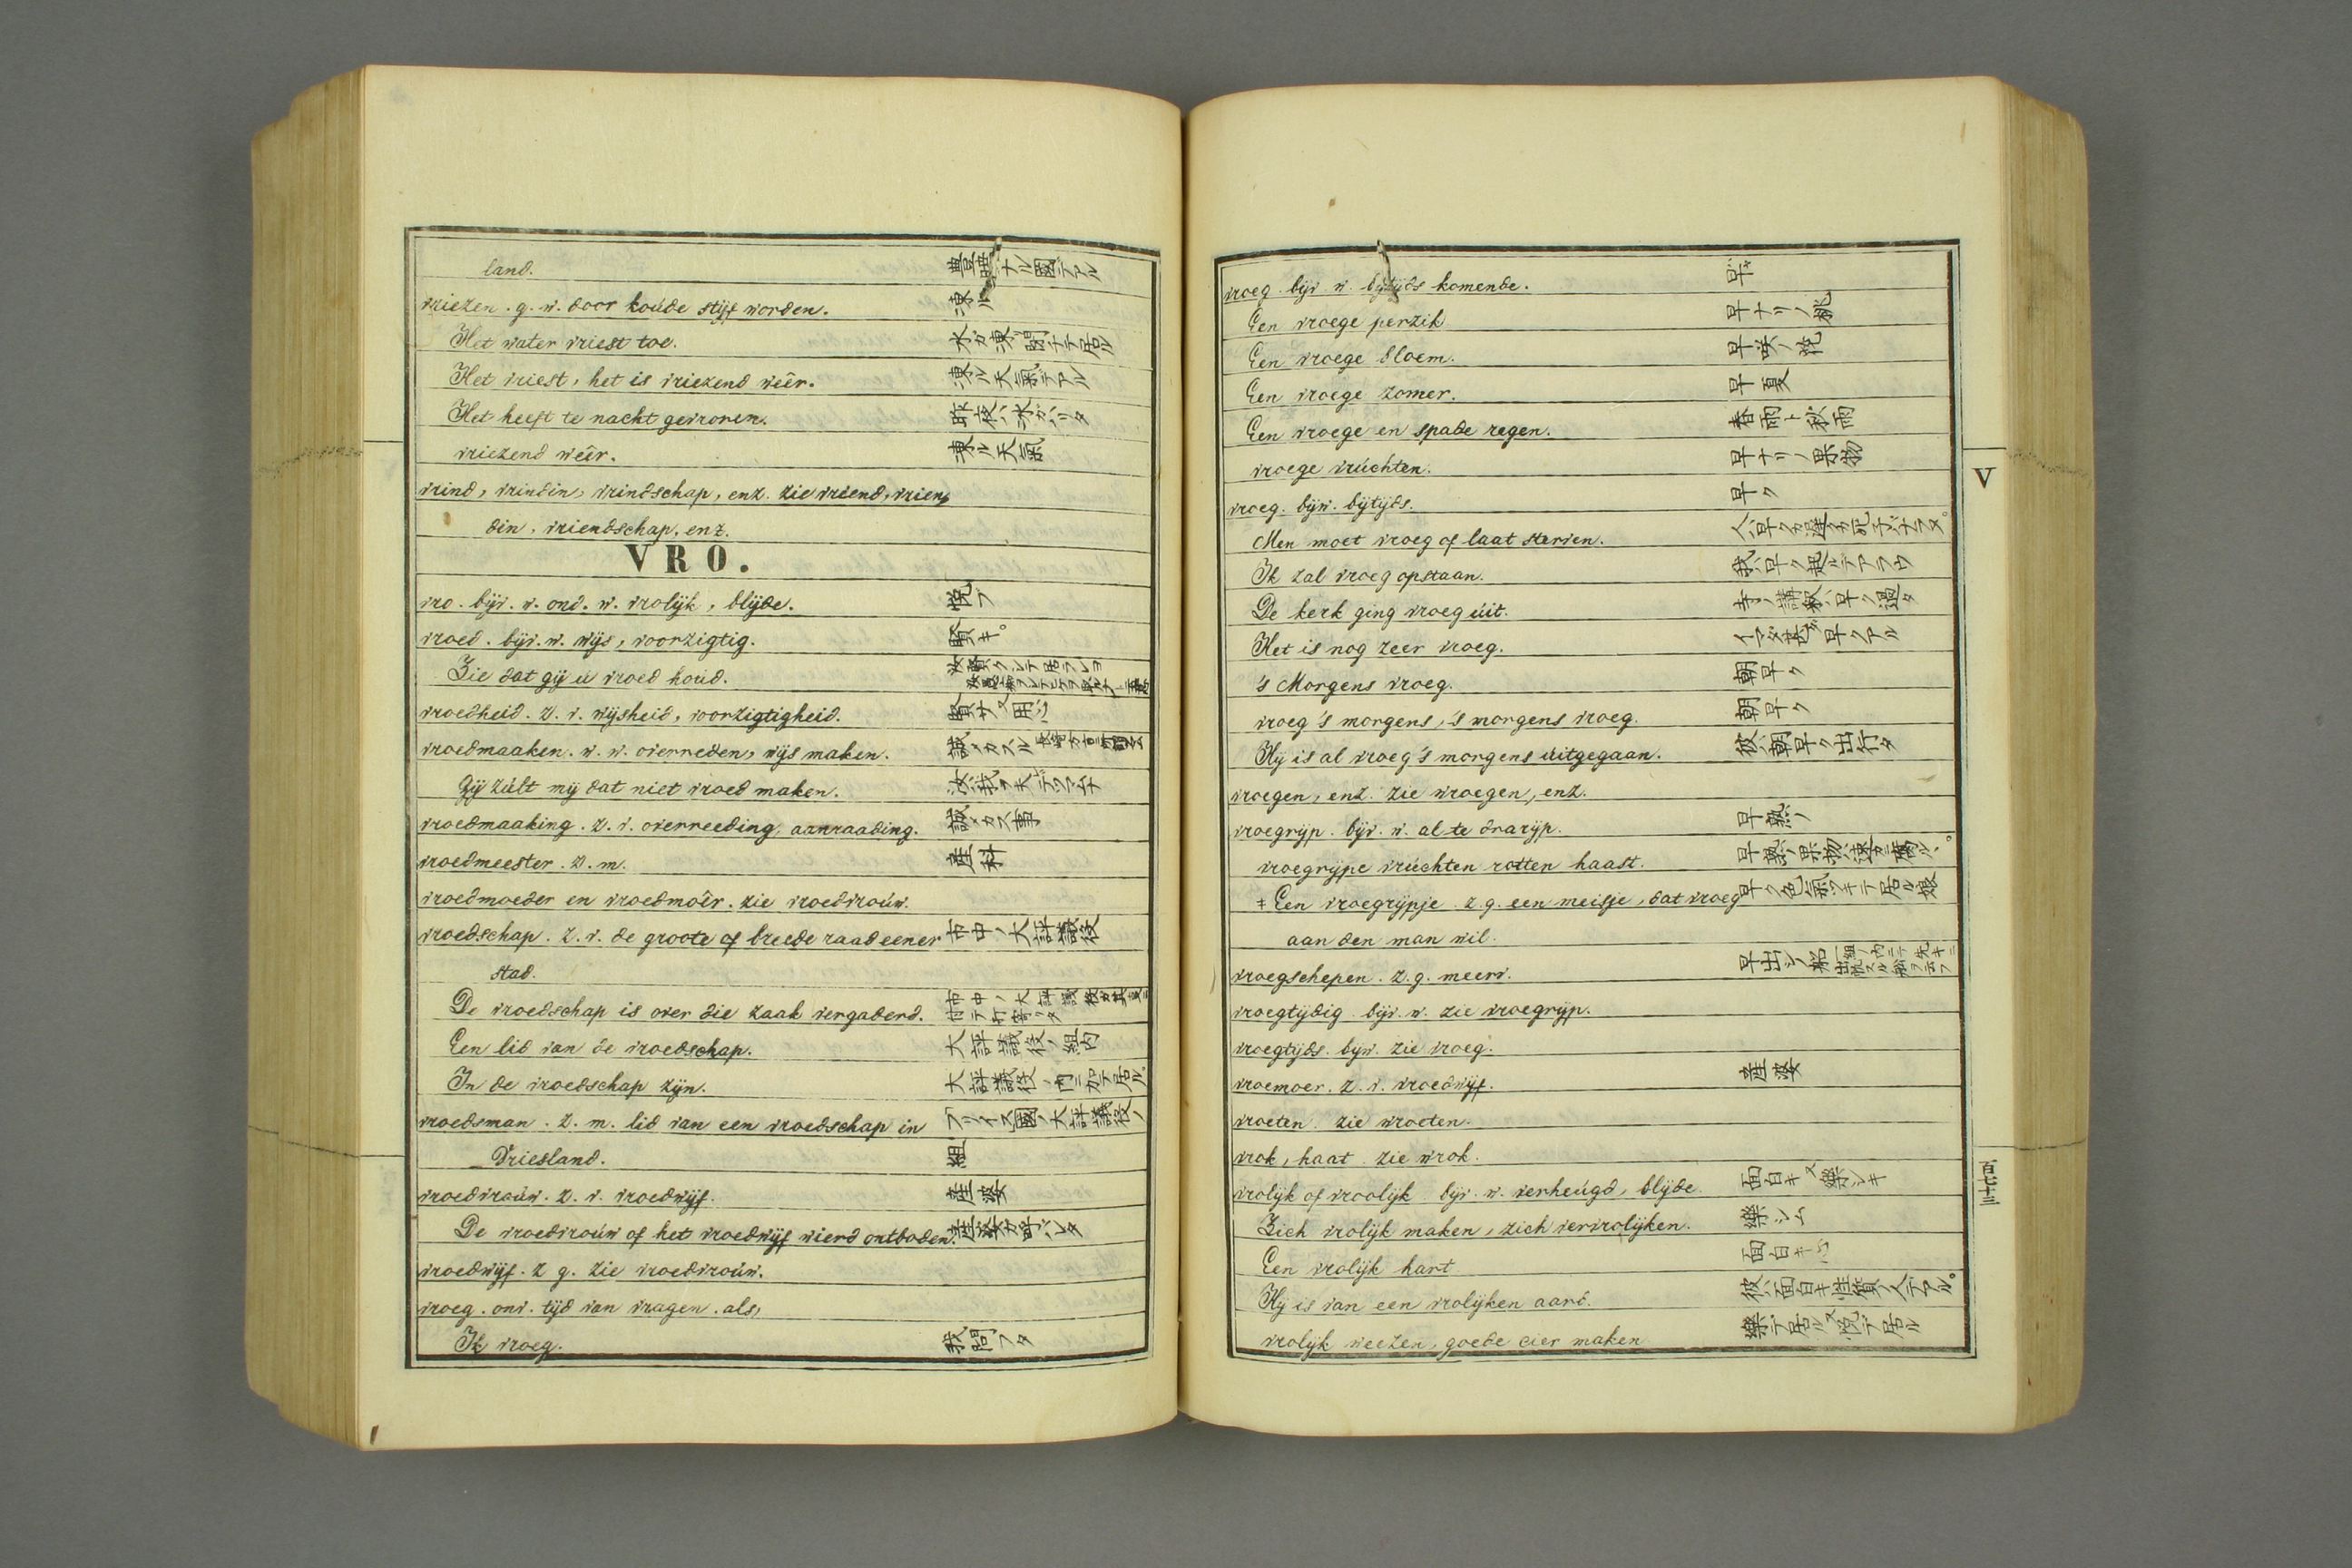 land. 豊 ナル國デアル
vriezen. g. w. door koúde stijf worden. 凍ル
Het water vriest toe. 水ガ凍閉テ居ル
Het vriest, het is vriezend wêêr. 凍ル天氣デアル
Het heeft te nacht gevroren. 昨夜ハ氷ガハリタ
vriezend wêêr. 凍ル天氣
vrind, vrindin, vrindschap, enz. zie vriend, vrien,
din, vriendschap, enz.
VRO.
vro. bijv. w. ond. w. vrolijk, blijde. 悦フ
vroed. bijv. w. wijs, voorzigtig. 賢キ。
Zie dat gij ú vroed houd.
vroedheid. z. v. wijsheid, voorzigtigheid. 賢サ又用心
vroedmaaken. w. w. overreden, wijs maken.
Gij zúlt mij dat niet vroed maken.
vroedmaaking. z. v. overreeding, aanraading.
vroedmeester. z. m. 産科
vroedmoeder en vroedmoêr. zie vroedvroúw.
vroedschap. z. v. de groote of breede raad eener 市中ノ大評議役
stad.
De vroedschap is over die zaak vergaderd.
Een lid van de vroedschap. 大評議役ノ組内
In de vroedschap zijn. 大評議役ノ内ニ加テ居ル。
vroedsman. z. m. lid van een vroedschap in フリイス國ノ大評議役ノ
Vriesland. 組
vroedvroúw. z. v. vroedwijf. 産婆
De vroedvroúw of het vroedwijf wierd ontboden. 産婆ガ呼バレタ
vroedwijf. z g. zie vroedvroúw.
vroeg. onv. tijd van vragen. als,
Ik vroeg. 我問フタ
vroeg. bijv w. bijtijds komende. 早キ
Een vroege perzik 早ナリノ桃
Een vroege bloem. 早咲ノ花
Een vroege zomer. 早夏
Een vroege en spade regen. 春雨ト秋雨
vroege vrúchten. 早ナリノ果物
vroeg. bijw. bijtijds. 早ク
Men moet vroeg of laat sterven.
Ik zal vroeg opstaan. 我ハ早ク起ルデアラウ
De kerk ging vroeg úit. 寺ノ講釈ハ早ク過タ
Het is nog zeer vroeg. イマダ甚ダ早クアル
's Morgens vroeg. 朝早ク
vroeg 's morgens, 's morgens vroeg. 朝早ク
Hij is al vroeg 's morgens úitgegaan. 彼ハ朝早ク出行タ
vroegen, enz. zie wroegen, enz.
vroegrijp. bijv. w. al te drarijp. 早熟ノ
vroegrijpe vrúchten rotten haast. 早熟ノ果物ハ速ニ腐ル。
‡ Een vroegrijpje. z. g. een meisje, dat vroeg 早ク色氣ツキテ居ル娘
aan den man wil.
vroegschepen. z. g. meerv. 早出シノ船
vroegtijdig bijv. w. zie vroegrijp.
vroegtijds. bijw. zie vroeg.
vroemoer. z. v. vroedwijf. 産婆
vroeten. zie wroeten.
vrok, haat. zie wrok.
vrolijk of vroolijk bijv. w. verheúgd, blijde 面白キ又樂シキ
Zich vrolijk maken, zich vervrolijken. 樂シム
Een vrolijk hart 面白キ心
Hij is van een vrolijken aard. 彼ハ面白キ性質ノ人デアル。
vrolijk weezen, goede cier maken 樂デ居ル又悦デ居ル
V
百七十三